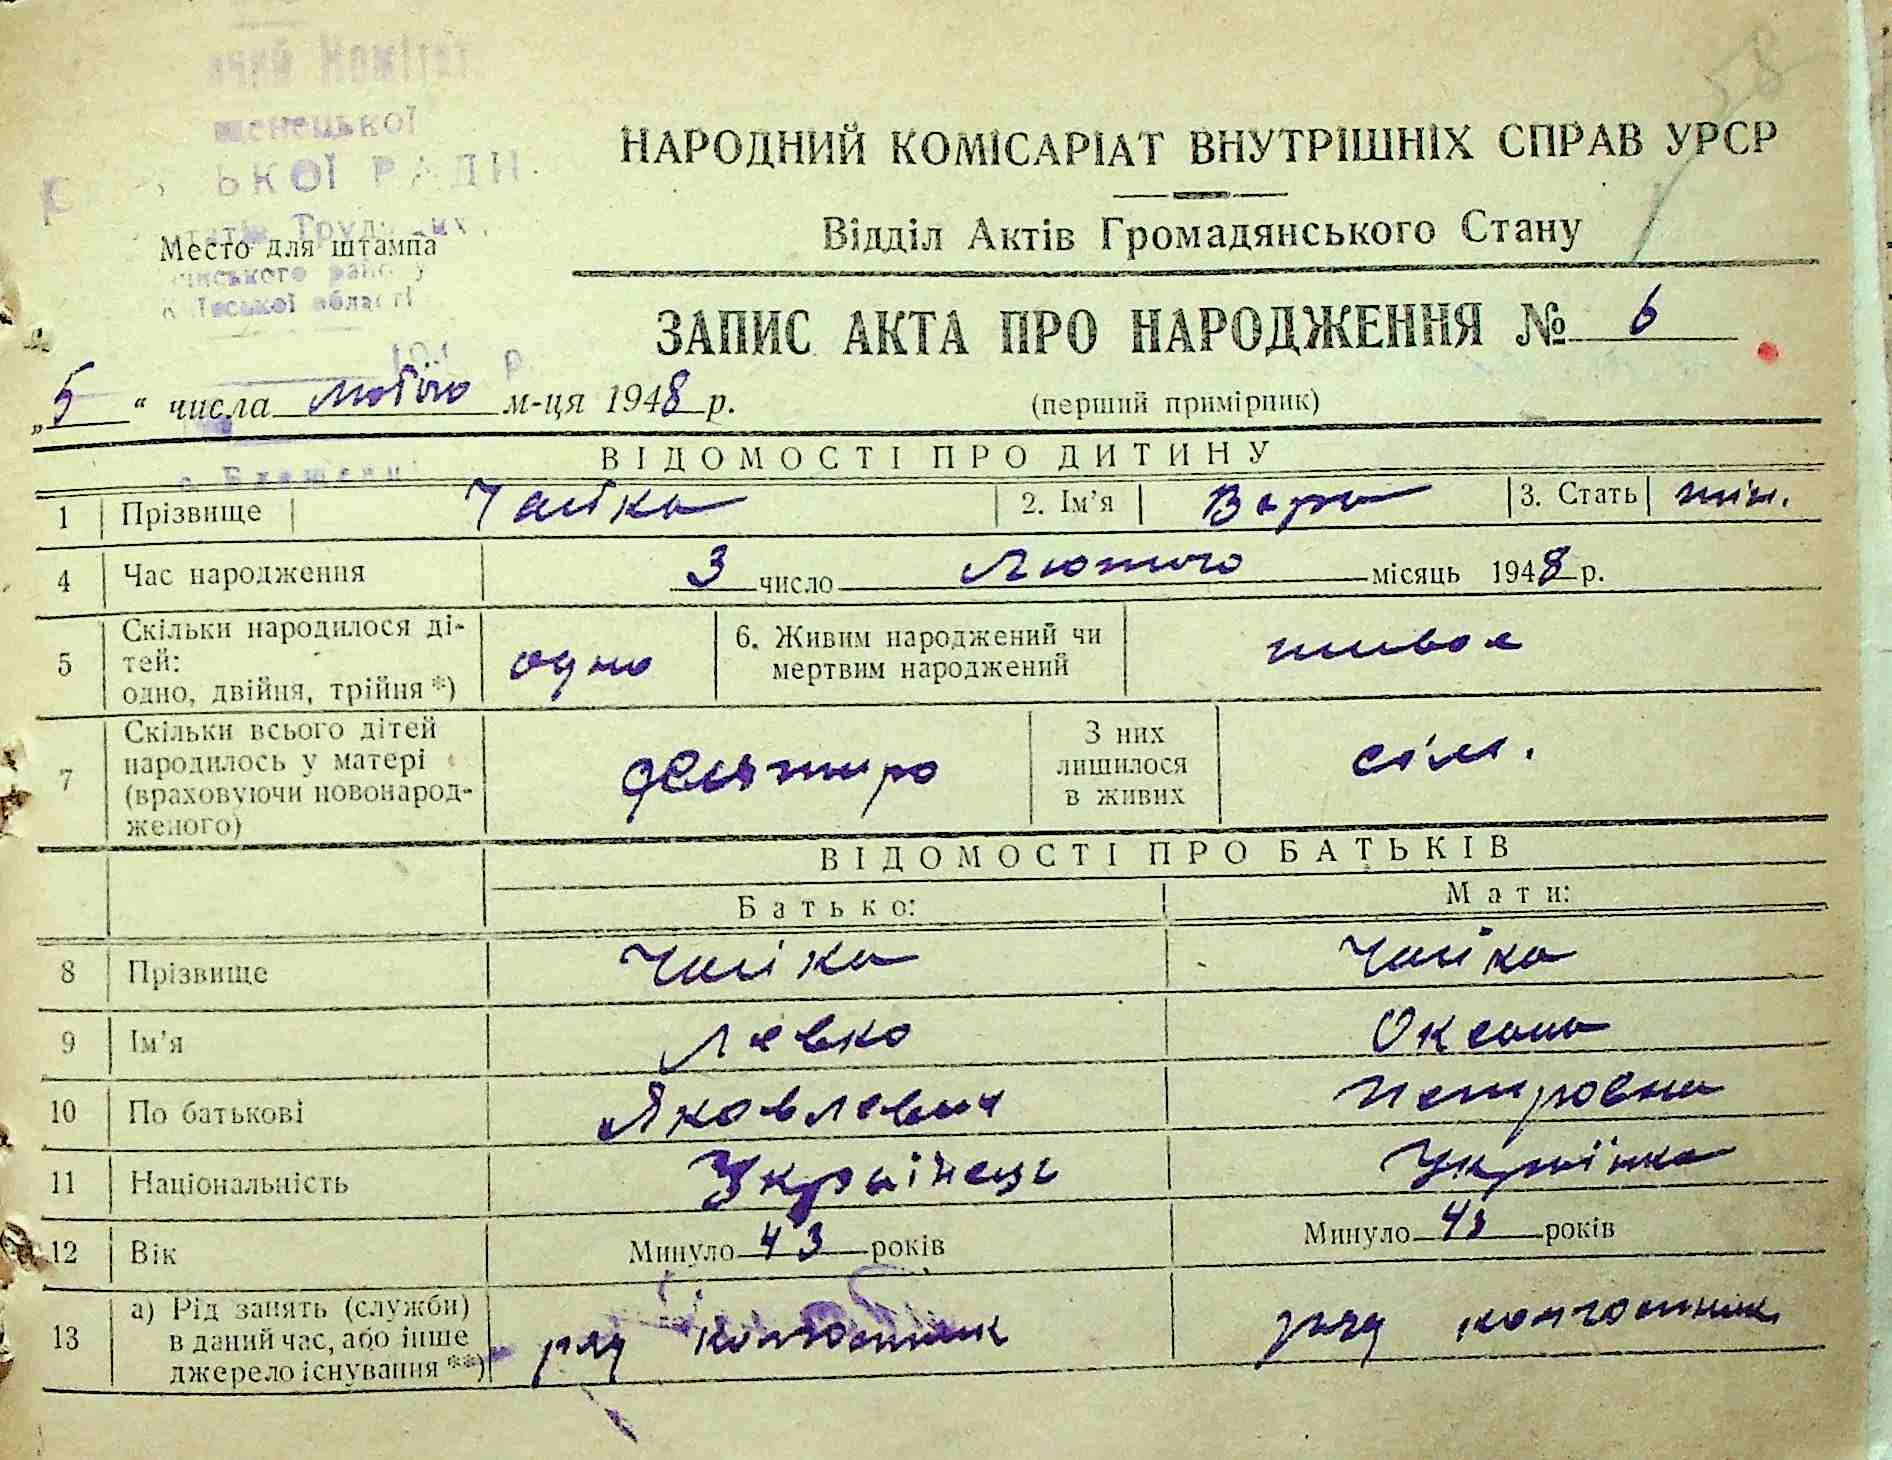 58
НАРОДНИЙ КОМІСАРІАТ ВНУТРІШНІХ СПРАВ УРСР
Відділ Актів Громадянського Стану
Место для штампа
ЗАПИС АКТА ПРО НАРОДЖЕННЯ № 6
„5“ числа лютого м-ця 1948 р.
(перший примірник)
ВІДОМОСТІ ПРО ДИТИНУ
1 Прізвище Чайка 2. Ім'я Вера 3. Стать жін.
4 Час народження 3 число Лютого місяць 1948 р.
5 Скільки народилося ді-
тей:
одно, двійня, трійня *) одно 6. Живим народжений чи
мертвим народжений живое
7 Скільки всього дітей
народилось у матері
(враховуючи новонарод-
женого) десятиро З них
лишилося
в живих сім.
ВІДОМОСТІ ПРО БАТЬКІВ
Батько: Мати:
8 Прізвище Чайка Чайка
9 Ім'я Левко Оксана
10 По батькові Яковлевич Петровна
11 Національність Українець Українка
12 Вік Минуло 43 років Минуло 43 років
13 а) Рід занять (служби)
в даний час, або інше
джерело існування **) ряд колгоспник ряд колгоспник